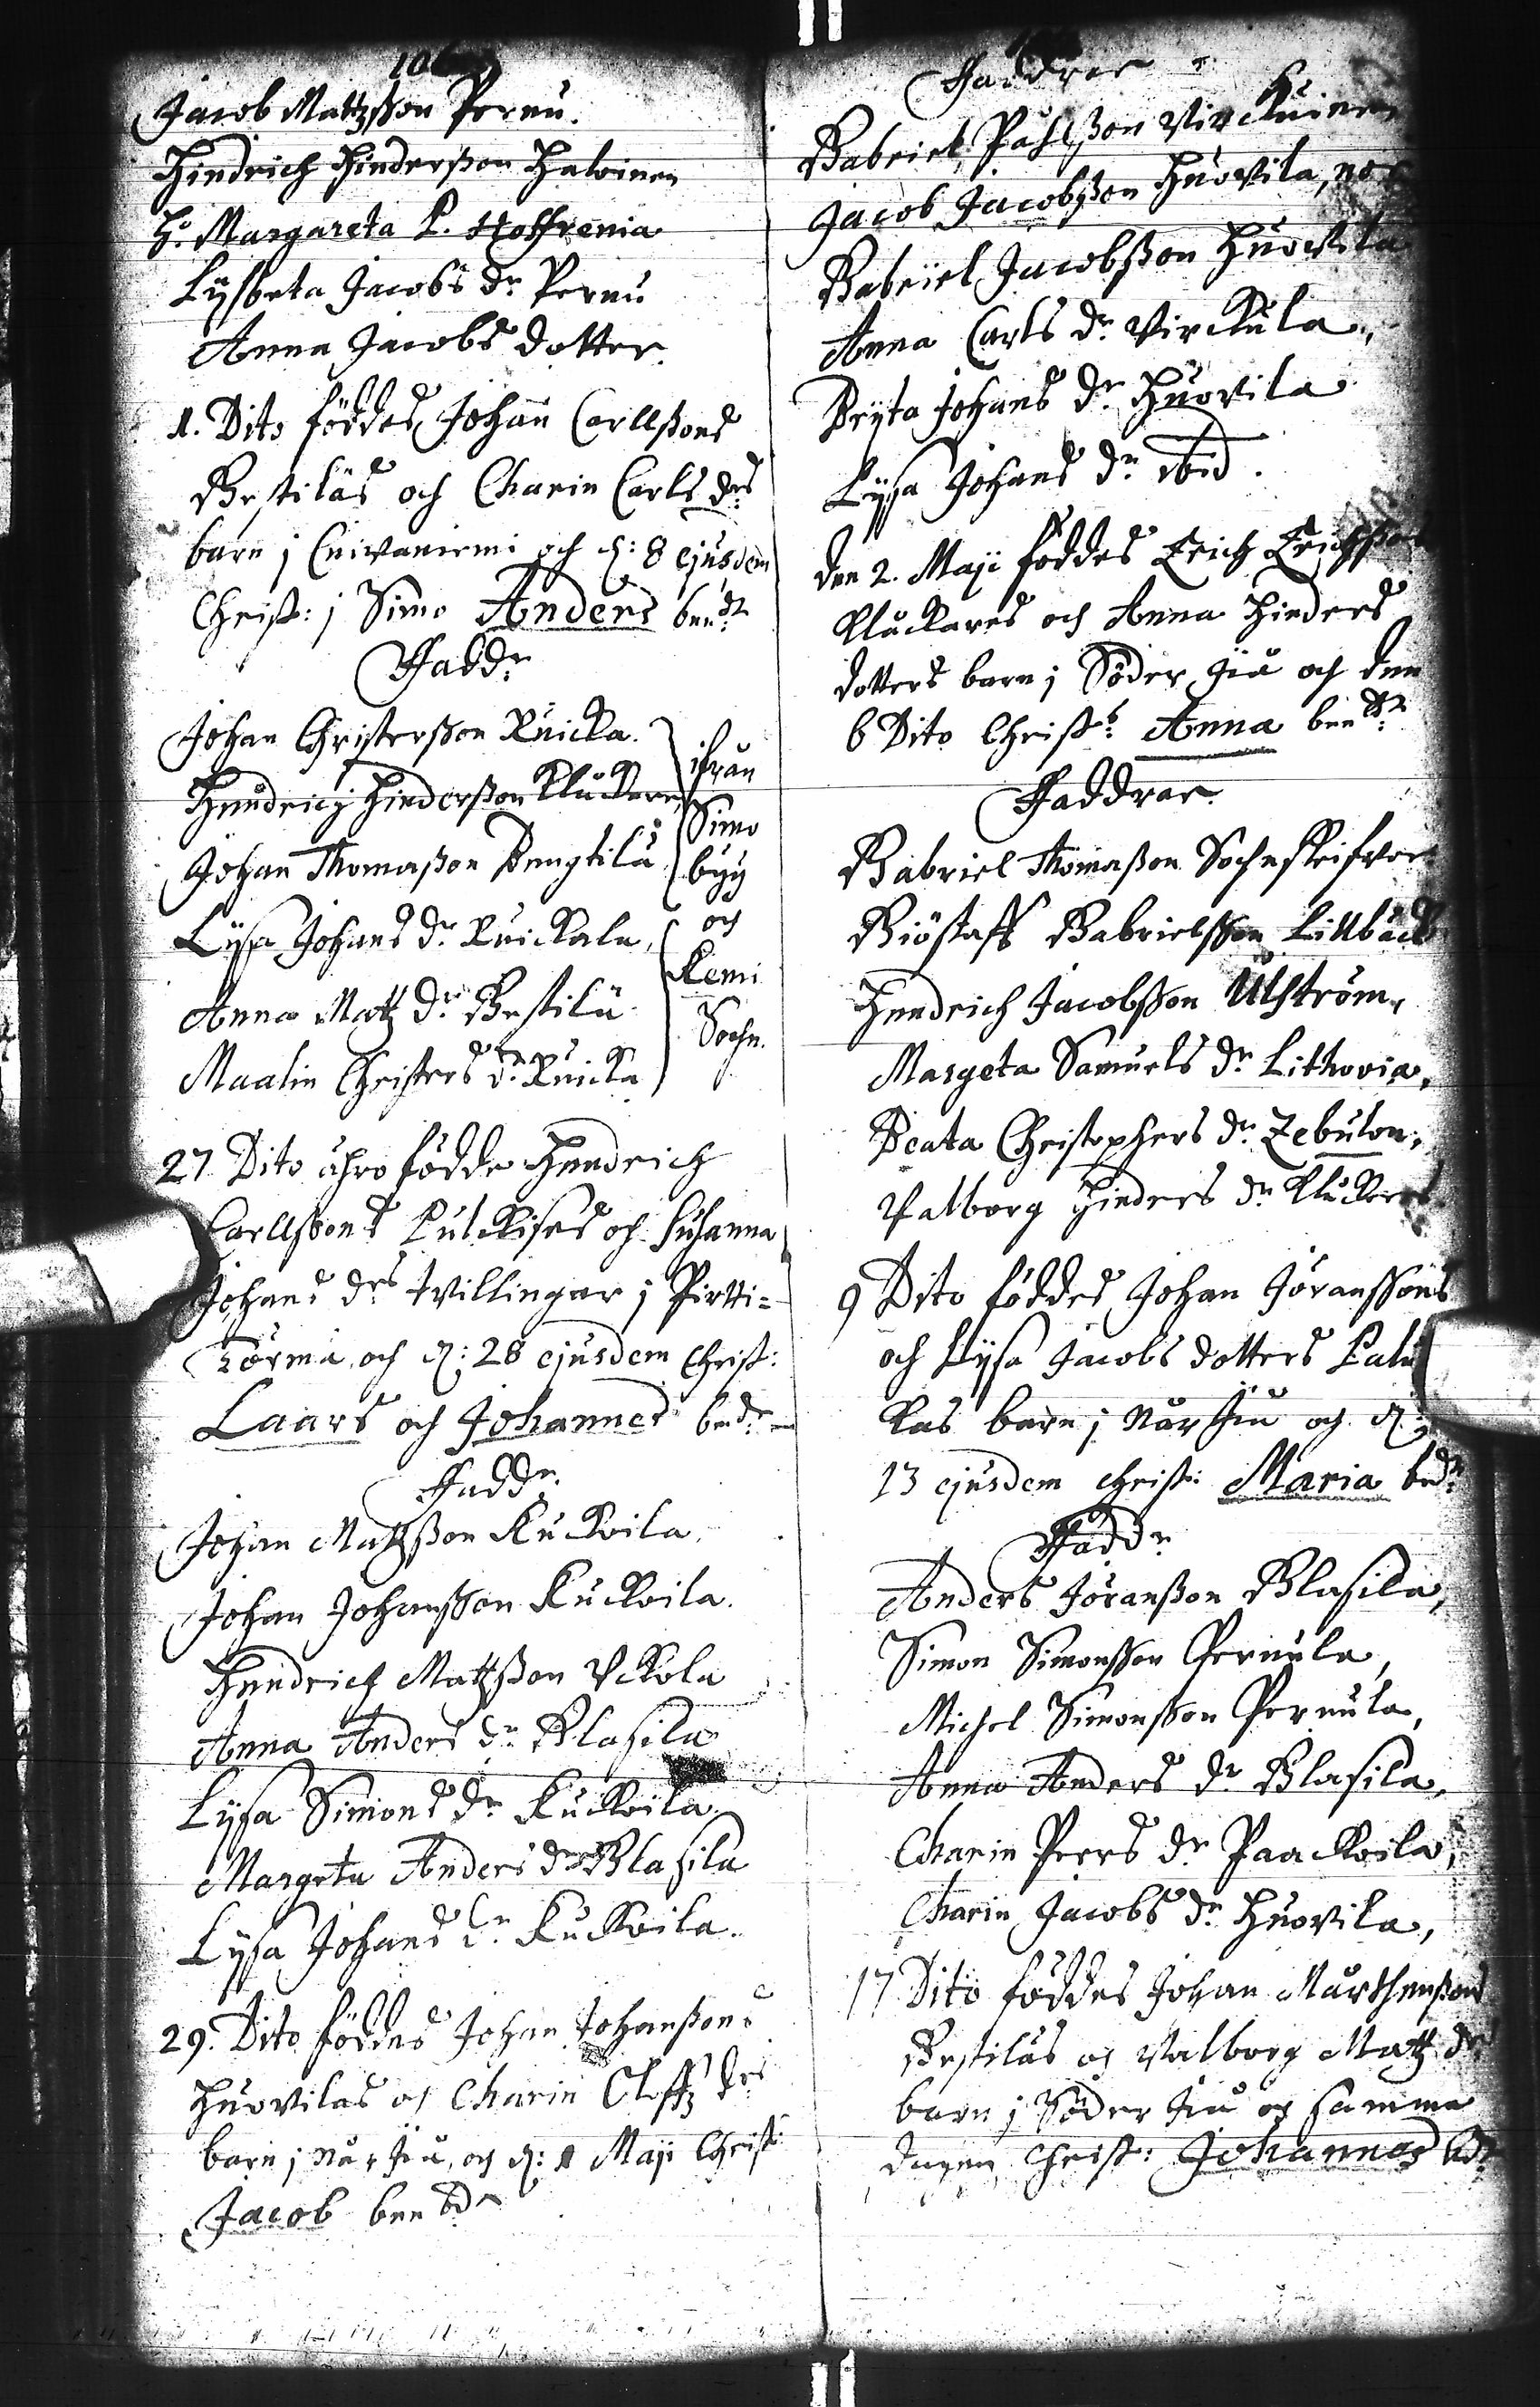 10
Jacob Mattzsson Pernu.
Hindrich Hindersson Halvinen
H. Margareta P. Hoffrenia
Lysbeta Jacobs dr Pernu
Anna Jacobs dotter.
1. Dito föddes Johan Carllssons
Bestilas och Charin Carls drs
barn j Cuivaniemi och d: 8 ejusdem
Christ: j Simo Anders ben:
Fadd:
Johan Christersson Kuicka.
Hendrich Hindersson Kluckare
Johan Thomasson Bengtila
Lysa Johans dr Kuickala,
Anna Matz dr Bestila
Maalin Christers dr Kuicka
ifrån
Simo
byy
och
Kemi
Sochn.
27 Dito ähro födde Hendrich
Carllssons Pulckises och Susanna
Johans drs tvillingar j Pirtti=
törmä, och d: 28 ejusdem Christ:
Laars och Johannes bed:
Fadd:
Johan Matzsson Kuckoila.
Johan Johansson Kuckoila.
Hendrich Mattzsson Uckola
Anna Anders dr Blasila
Lysa Simons dr Kuckoila.
Margeta Anders dr Blasila
Lysa Johans dr Kuckoila.
29. Dito föddes Johan Johanssons
Huovilas och Charin Oloffz drs
barn j Når Jiu, och d: 1 Maji Christ:
Jacob ben:
Faddrar
Gabriel Påhlsson Virckuinen
Jacob Jacobsson Huovila,
Gabriel Jacobsson Huovila
Anna Carls dr Virckula,
Bryta Johans dr Huovila
Lysa Johans dr ibid.
den 2. Maji föddes Erich Erichssons
Kluckares och Anna Hinders
dotters barn j Söder Jiu och den
6 Dito Christ: Anna ben:
Faddrar.
Gabriel Thomasson Sochnskrifvar
Giöstaff Gabrielsson Lillbäck
Hendrich Jacobsson Ulström,
Margeta Samuels dr Lithovia,
Beata Christophers dr Zebulon,
Valborg Hinders dr Kluckare
9 Dito föddes Johan Jöranssons
och Lysa Jacobs dotters Palu
kas barn j Når Jiu och d:
13 ejusdem Christ: Maria bed:
Fadd:
Anders Jöransson Blasila,
Simon Simonsson Pernula,
Michel Simonsson Pernula,
Anna Anders dr Blasila,
Charin Peers dr Paackoila,
Charin Jacobs dr Huovila,
17 Dito föddes Johan Mårthenssons
Bestilas och Valborg Matz drs
barn j Söder Jiu och samma
dagen Christ: Johannes bd: